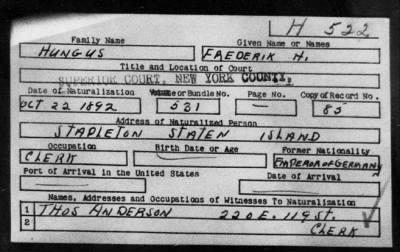 H 522
Family Name Given Name or Names
HUNGUS FREDERIK H.
Title and Location of Court
SUPERIOR COURT, NEW YORK COUNTY,
Date of Naturalization Volume or Bundle No. Page No. Copy of Record No.
OCT 22 1892 531 — 85
Address of Naturalized Person
STAPLETON STATEN ISLAND
Occupation Birth Date or Age Former Nationality
CLERK EMPEROR OF GERMANY
Port of Arrival in the United States Date of Arrival
Names, Addresses and Occupations of Witnesses To Naturalization
1 THOS ANDERSON 220 E. 119 ST.
2 CLERK